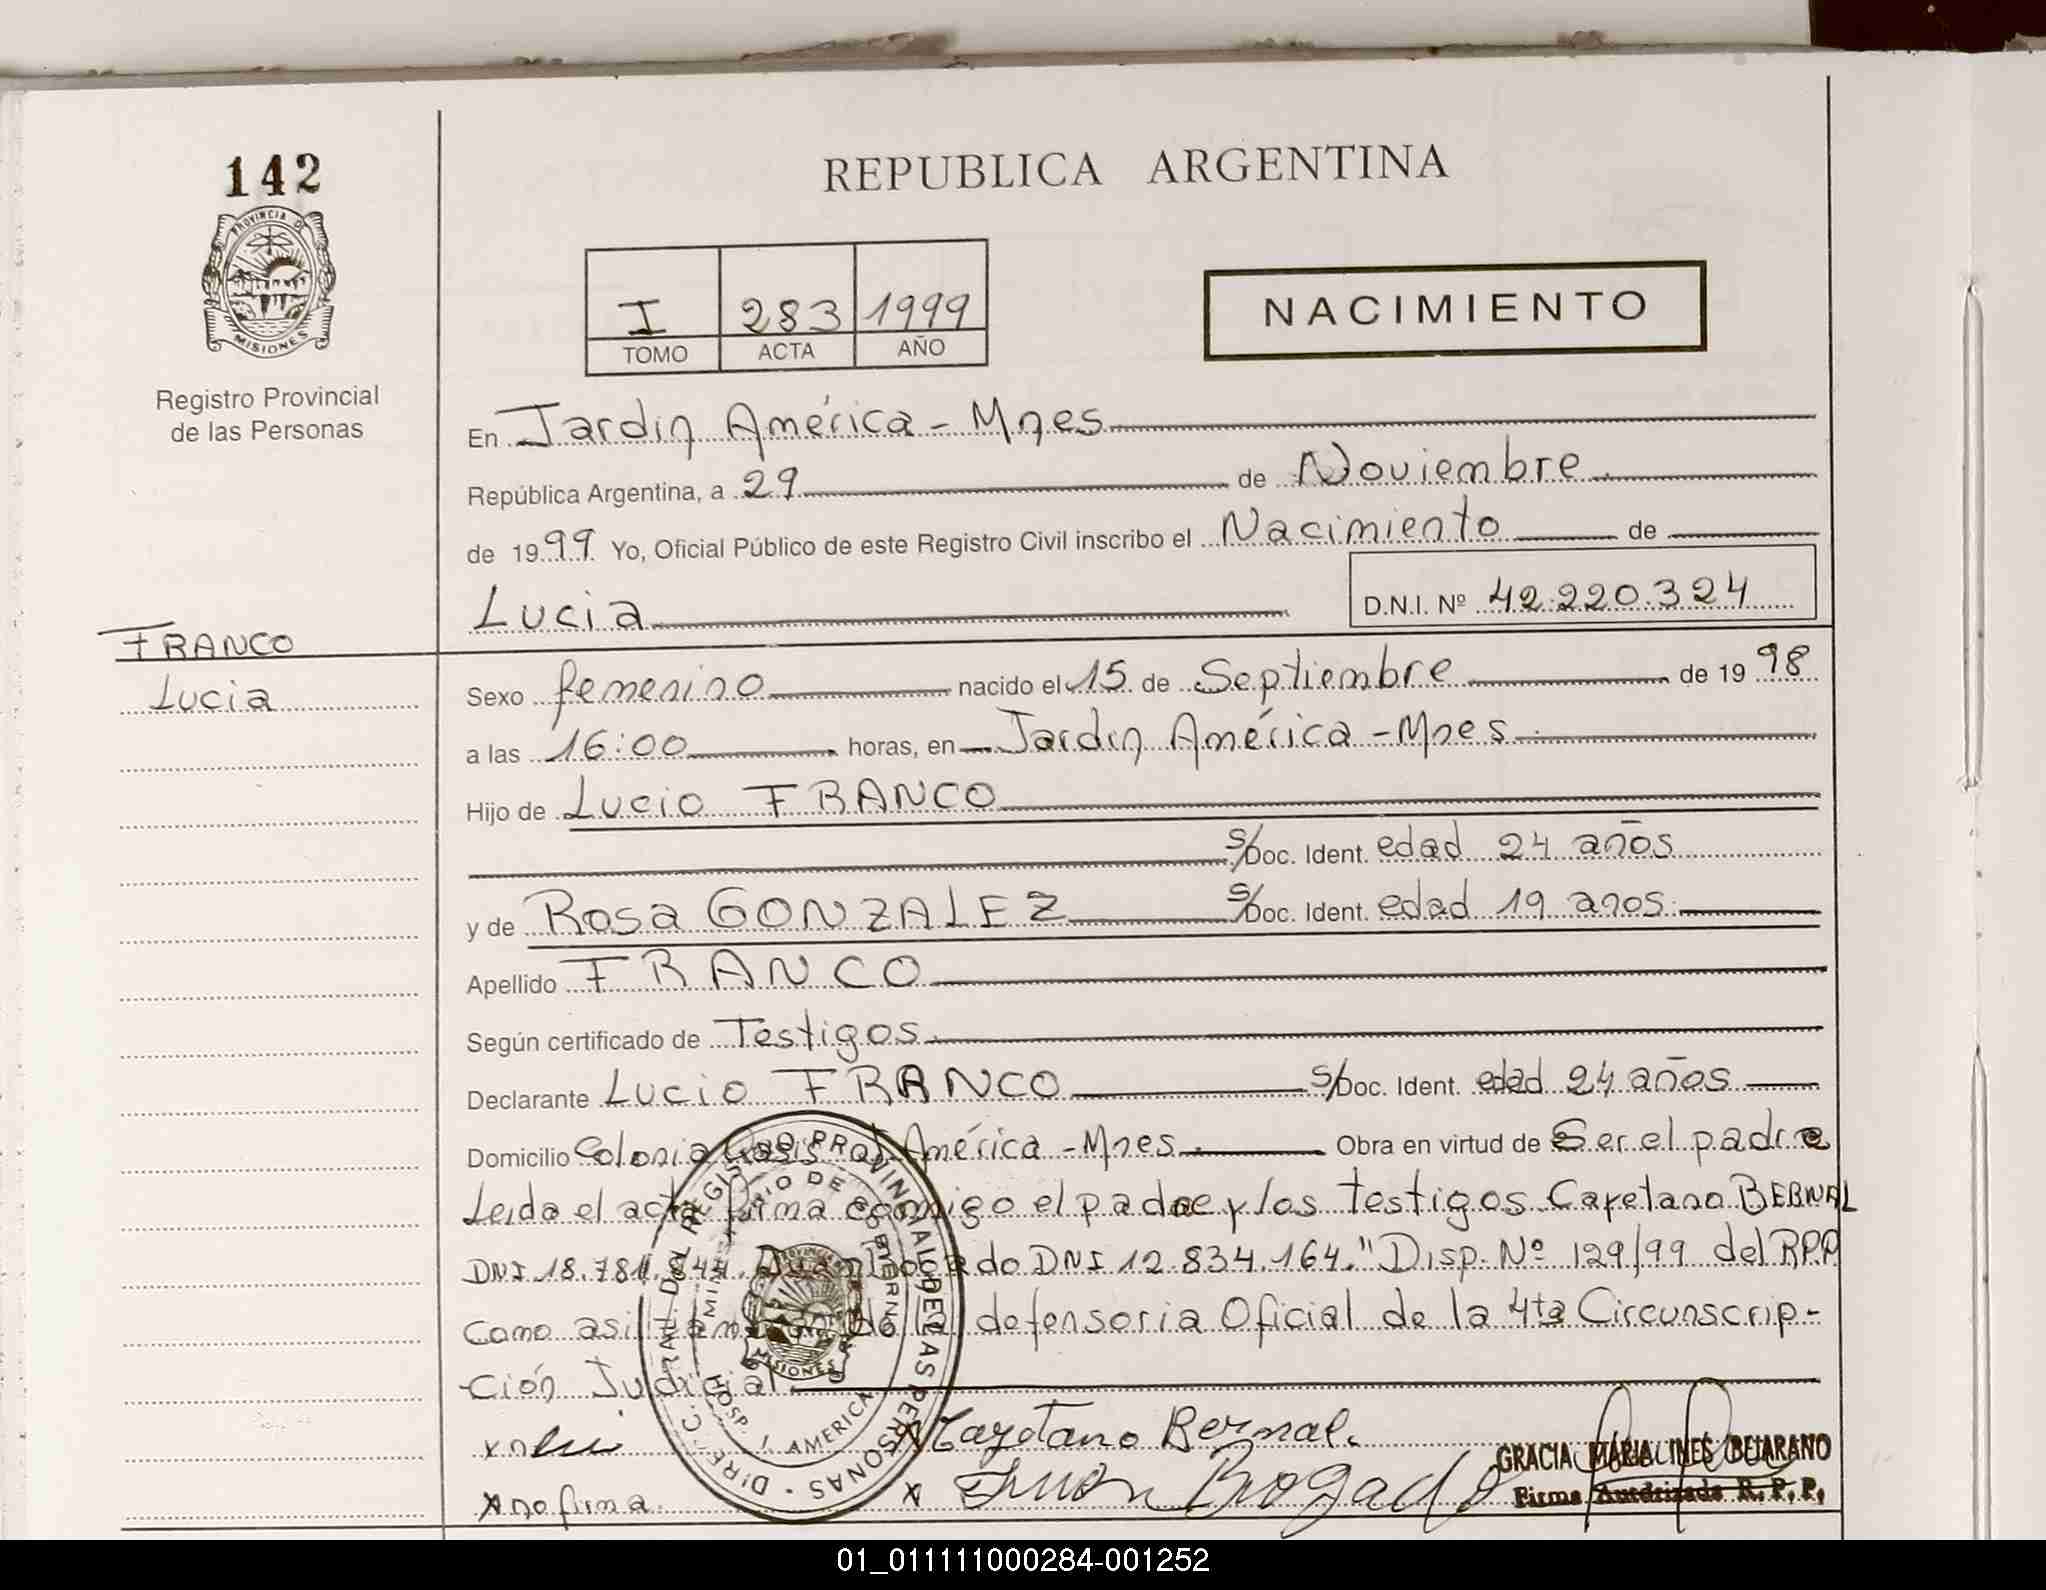 142
REPUBLICA ARGENTINA
PROVINCIA DE
MISIONES
I 283 1999
TOMO ACTA AÑO
NACIMIENTO
Registro Provincial
de las Personas
En Jardin América - Mnes
República Argentina, a 29 de Noviembre
de 1999 Yo, Oficial Público de este Registro Civil inscribo el Nacimiento de
Lucia D.N.I. Nº 42.220.324
FRANCO
Lucia
Sexo femenino nacido el 15 de Septiembre de 1998
a las 16:00 horas, en Jardin América - Mnes
Hijo de Lucio FRANCO
s/Doc. Ident. edad 24 años
y de Rosa GONZALEZ s/Doc. Ident. edad 19 anos
Apellido FRANCO
Según certificado de Testigos
Declarante Lucio FRANCO s/Doc. Ident. edad 24 años
Domicilio Colonia Oasis América - Mnes. Obra en virtud de Ser el padre
Leida el acta firma conmigo el padre y los testigos Cayetano BERNAL
DNI 18.781. Juan Bogado DNI 12.834.164." Disp. Nº 129/99 del R.P.P
Como asi defensoria Oficial de la 4ta Circunscrip-
ción Judicial
Cayetano Bernal.
x no firma x Juan Bogado
GRACIA MARIA INES BEJARANO
Firma Autorizada R. P. P.
DIREC. GRAL. DEL REGISTRO PROVINCIAL DE LAS PERSONAS
MINISTERIO DE GOBIERNO
HOSP. J. AMERICA
MISIONES
01_011111000284-001252